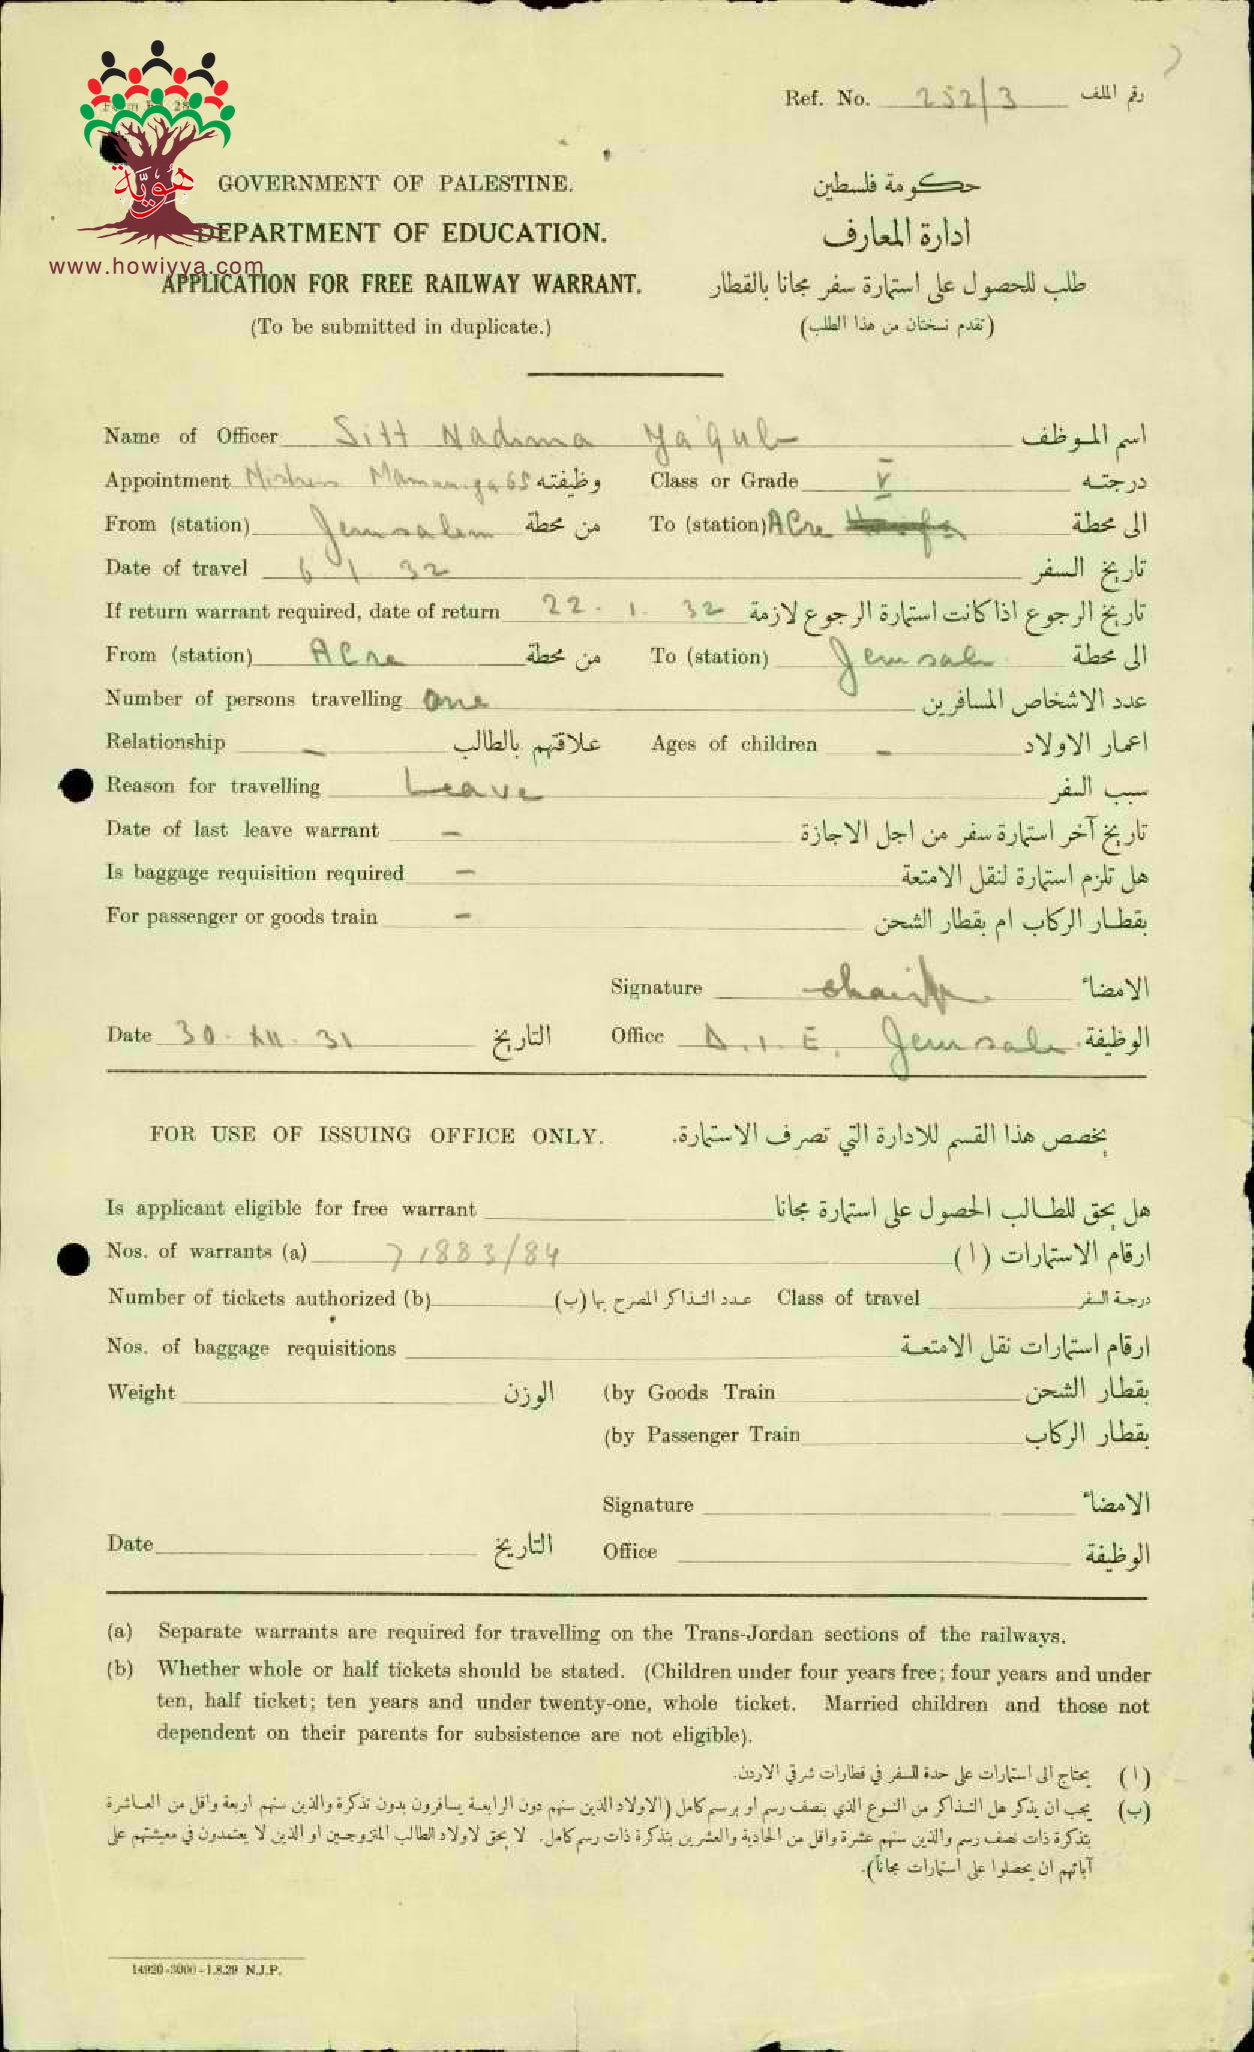 Ref. No. 252/3 رقم الملف
هويّة
www.howiyya.com
GOVERNMENT OF PALESTINE. حكومة فلسطين
DEPARTMENT OF EDUCATION. ادارة المعارف
APPLICATION FOR FREE RAILWAY WARRANT. طلب للحصول على استمارة سفر مجانا بالقطار
(To be submitted in duplicate.) (تقدم نسختان من هذا الطلب)
Name of Officer Sitt Nadima Ya'qub اسم الموظف
Appointment وظيفته Class or Grade V درجته
From (station) Jerusalem من محطة To (station) Acre الى محطة
Date of travel 6 . 1 . 32 تاريخ السفر
If return warrant required, date of return 22 . 1 . 32 تاريخ الرجوع اذا كانت استمارة الرجوع لازمة
From (station) Acre من محطة To (station) الى محطة
Number of persons travelling one عدد الاشخاص المسافرين
Relationship – علاقتهم بالطالب Ages of children – اعمار الاولاد
Reason for travelling Leave سبب السفر
Date of last leave warrant – تاريخ آخر استمارة سفر من اجل الاجازة
Is baggage requisition required – هل تلزم استمارة لنقل الامتعة
For passenger or goods train – بقطار الركاب ام بقطار الشحن
Signature الامضاء
Date 30 . XII . 31 التاريخ Office الوظيفة
FOR USE OF ISSUING OFFICE ONLY. يخصص هذا القسم للادارة التي تصرف الاستمارة.
Is applicant eligible for free warrant هل يحق للطالب الحصول على استمارة مجانا
Nos. of warrants (a) 71883/84 ارقام الاستمارات (ا)
Number of tickets authorized (b) عدد التذاكر المصرح بها (ب) Class of travel درجة السفر
Nos. of baggage requisitions ارقام استمارات نقل الامتعة
Weight الوزن (by Goods Train بقطار الشحن
(by Passenger Train بقطار الركاب
Signature الامضاء
Date التاريخ Office الوظيفة
(a) Separate warrants are required for travelling on the Trans-Jordan sections of the railways.
(b) Whether whole or half tickets should be stated. (Children under four years free; four years and under
ten, half ticket; ten years and under twenty-one, whole ticket. Married children and those not
dependent on their parents for subsistence are not eligible).
(ا) يحتاج الى استمارات على حدة للسفر في قطارات شرقي الاردن.
(ب) يجب ان يذكر هل التذاكر من النوع الذي بنصف رسم او برسم كامل (الاولاد الذين سنهم دون الرابعة يسافرون بدون تذكرة والذين سنهم اربعة واقل من العاشرة
بتذكرة ذات نصف رسم والذين سنهم عشرة واقل من الحادية والعشرين بتذكرة ذات رسم كامل. لا يحق لاولاد الطالب المتزوجين او الذين لا يعتمدون في معيشتهم على
آبائهم ان يحصلوا على استمارات مجاناً).
14920-3000-1.8.29 N.J.P.